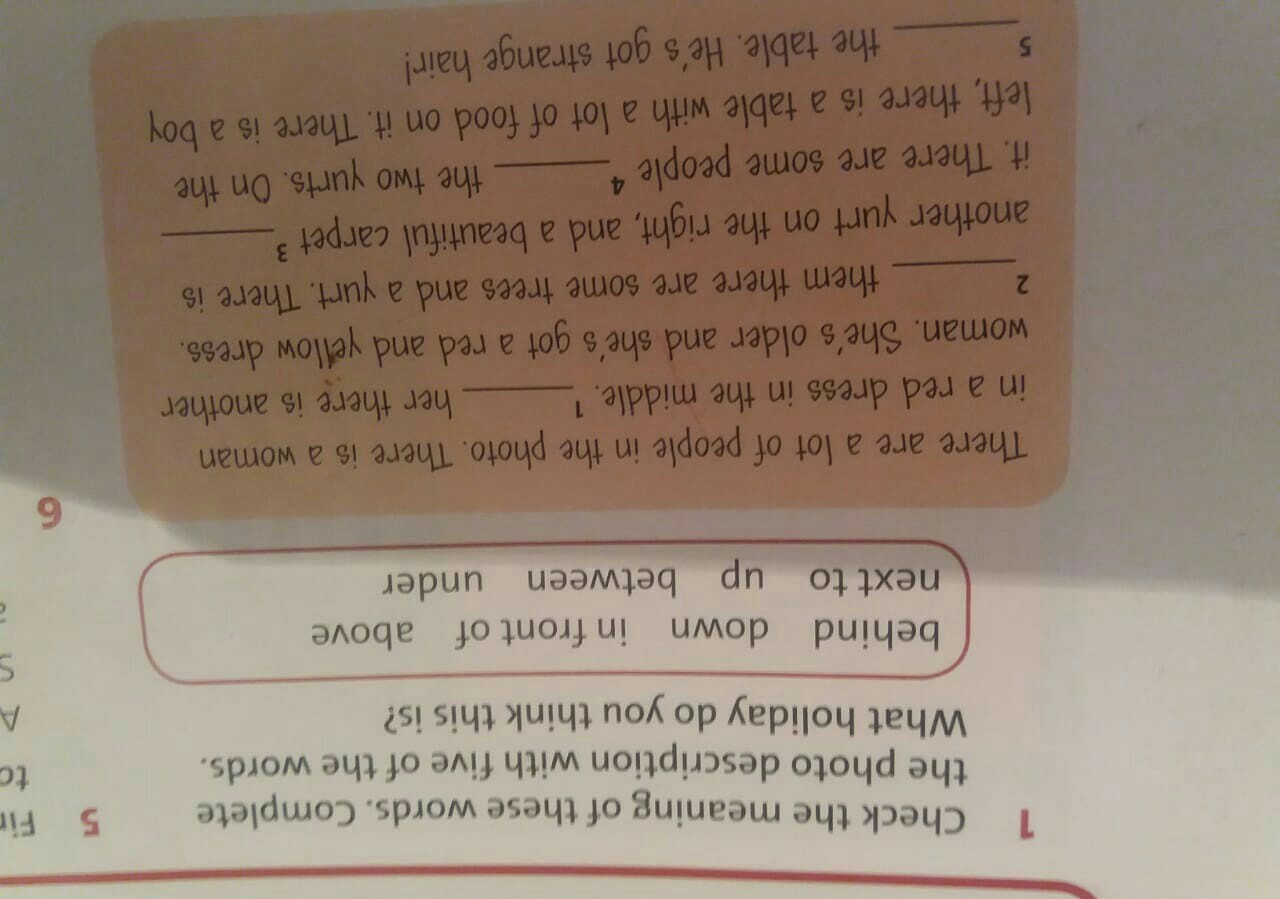 1 Check the meaning of these words. Complete
the photo description with five of the words.
What holiday do you think this is?
behind down in front of above
next to up between under
There are a lot of people in the photo. There is a woman
in a red dress in the middle. 1 ______ her there is another
woman. She's older and she's got a red and yellow dress.
2 ______ them there are some trees and a yurt. There is
another yurt on the right, and a beautiful carpet 3 ______
it. There are some people 4 ______ the two yurts. On the
left, there is a table with a lot of food on it. There is a boy
5 ______ the table. He's got strange hair!
5
to
A
6